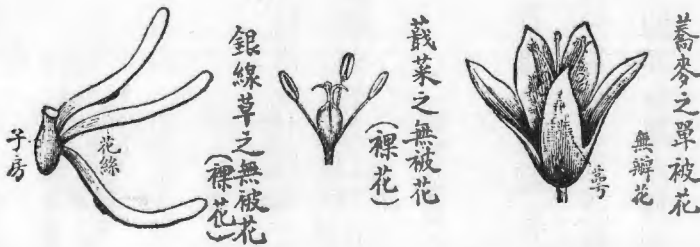 蕎麥之單被花
無瓣花
萼
蕺菜之無被花
(裸花)
銀線草之無被花
(裸花)
花絲
子房